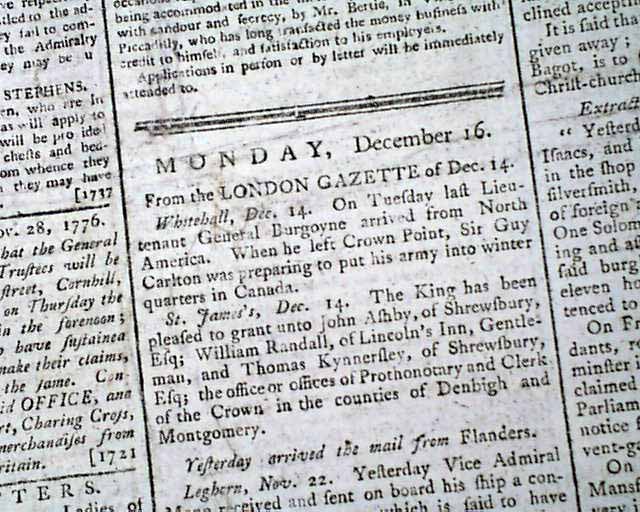 ad-
y fail to com-
the Admiralty
ey may be u
STEPHENS.
en, who are in
as will apply to
will be pro ide
chests and bed-
om whence they
they may have
[1737
ov. 28, 1776.
hat the General
Trustees will be
street, Cornhill,
on Thursday the
in the forenoon;
have sustained
make their claims,
the same. Con-
id OFFICE, and
rt, Charing Cross,
merchandises from
ritain. [1721
TERS.
Ladies of
being accommodated in the
with candour and secrecy, by Mr. Bertie, in
Piccadilly, who has long transacted the money business with
credit to himself, and satisfaction to his employers.
Applications in person or by letter will be immediately
attended to.
MONDAY, December 16.
From the LONDON GAZETTE of Dec. 14.
Whitehall, Dec. 14. On Tuesday last Lieu-
tenant General Burgoyne arrived from North
America. When he left Crown Point, Sir Guy
Carlton was preparing to put his army into winter
quarters in Canada.
St. James's, Dec. 14. The King has been
pleased to grant unto John Ashby, of Shrewsbury,
Esq; William Randall, of Lincoln's Inn, Gentle-
man, and Thomas Kynnersley, of Shrewsbury,
Esq; the office or offices of Prothonotary and Clerk
of the Crown in the counties of Denbigh and
Montgomery.
Yesterday arrived the mail from Flanders.
Leghorn, Nov. 22. Yesterday Vice Admiral
Mann received and sent on board his ship a con-
which is said to have
clined accepti
It is said that
given away;
Bagot, is to
Christ-church
Extract
" Yesterd
Isaacs, and
in the shop
silversmith,
of foreign
One Solom
ing and a
said burg
eleven ho
tenced to
On F
dants, r
minster
claimed
Parliam
notice
vent-g
On
Mansf
very